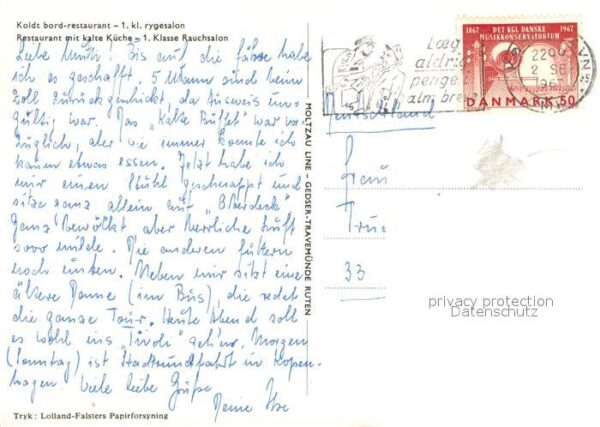 Koldt bord-restaurant – 1. kl. rygesalon
Restaurant mit kalte Küche – 1. Klasse Rauchsalon
Liebe Mutti! Bis auf die Fähre habe
ich es geschafft. 5 Mann sind beim
Zoll zurückgeschickt, da Ausweis un-
gültig war. Das „Kalte Büffet" war vor-
züglich, aber wie immer konnte ich
kaum etwas essen. Jetzt habe ich
mir einen Stuhl geschnappt und
sitze ganz allein auf „Oberdeck"
Ganz bewölkt aber herrliche Luft
sooo milde. Die anderen futtern
noch unten. Neben mir sitzt eine
ältere Dame (im Bus), die redet
die ganze Tour. Heute Abend soll
es wohl ins „Tivoli" geh'n. Morgen
(Samstag) ist Stadtrundfahrt in Kopen-
hagen. Viele liebe Grüße
Deine
Tryk: Lolland-Falsters Papirforsyning
MOLTZAU LINE – GEDSER-TRAVEMÜNDE RUTEN
Læg
aldrig
penge
alm. brev
1867 DET KGL DANSKE 1967
MUSIKKONSERVATORIUM
DANMARK 50
2 SE
Deutschland
Frau
33
privacy protection
Datenschutz